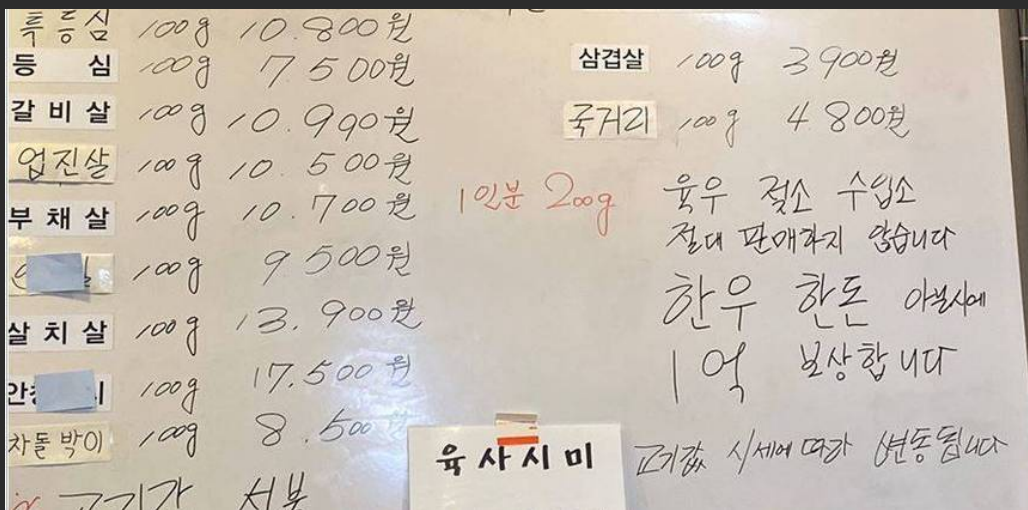 특등심 100g 10.800원
등 심 100g 7.500원
갈비살 100g 10.990원
업진살 100g 10.500원
부채살 100g 10.700원
100g 9.500원
살치살 100g 13.900원
안 100g 17.500원
차돌박이 100g 8.500
삼겹살 100g 3900원
국거리 100g 4.800원
1인분 200g
육우 젖소 수입소
절대 판매하지 않습니다
한우 한돈 아닐시에
1억 보상합니다
육사시미
고기값 시세에 따라 변동됩니다